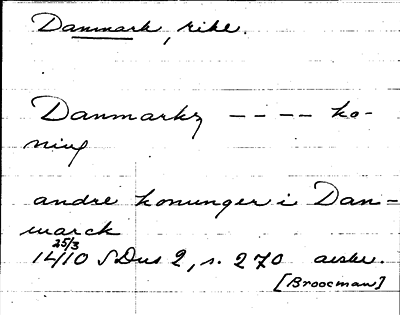 Danmark, rike.
Danmarkz ---- ko-
ning
andre konunger i Dan-
marck
25/3
1410 SDns 2, s. 270 avskr.
[Broocman]